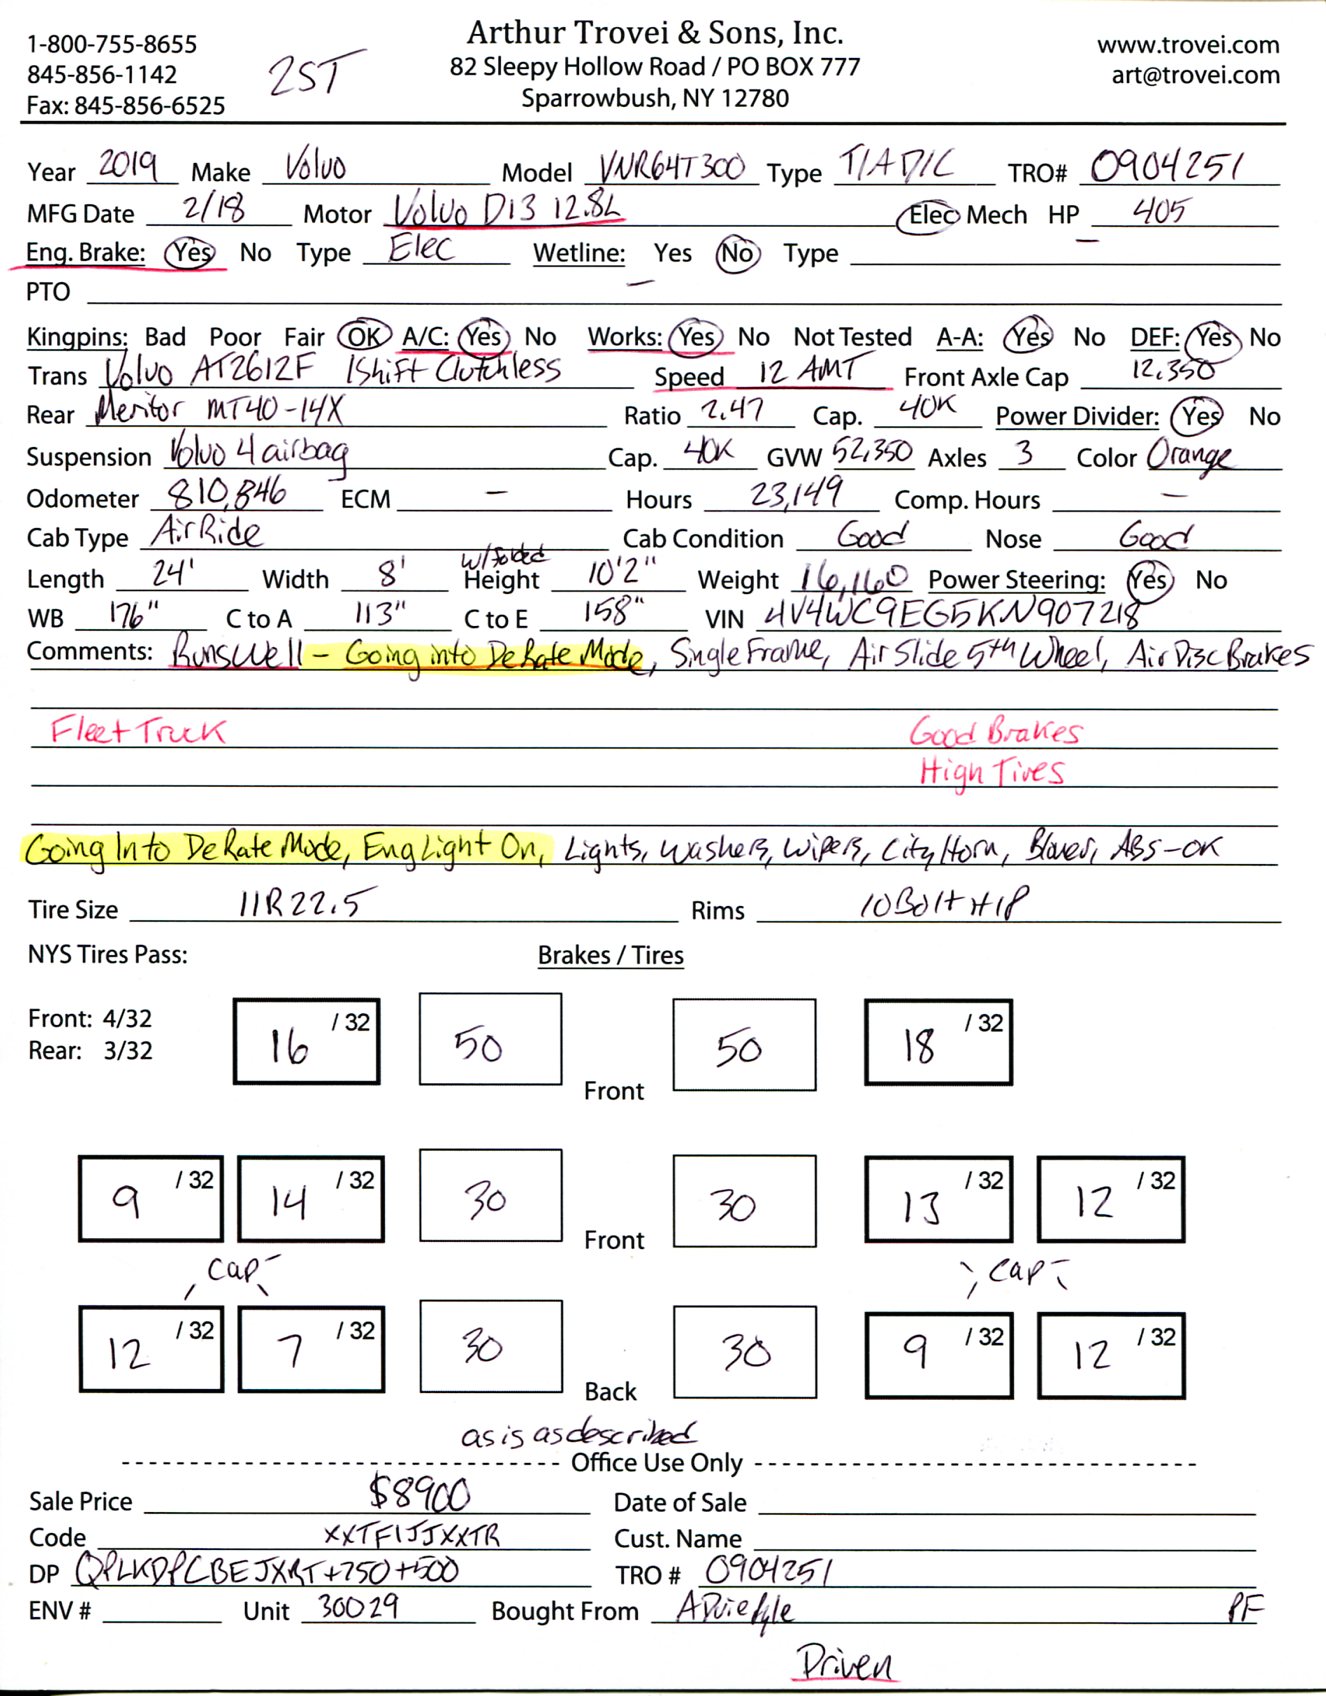 1-800-755-8655
845-856-1142
Fax: 845-856-6525
2ST
Arthur Trovei & Sons, Inc.
82 Sleepy Hollow Road / PO BOX 777
Sparrowbush, NY 12780
www.trovei.com
art@trovei.com
Year 2019 Make Volvo Model VNR64T300 Type T/A D/C TRO# 0904251
MFG Date 2/18 Motor Volvo D13 12.8L Elec Mech HP 405
Eng. Brake: Yes No Type Elec Wetline: Yes No Type
PTO
Kingpins: Bad Poor Fair OK A/C: Yes No Works: Yes No Not Tested A-A: Yes No DEF: Yes No
Trans Volvo AT2612F IShift Clutchless Speed 12 AMT Front Axle Cap 12,350
Rear Meritor MT40-14X Ratio 2.47 Cap. 40K Power Divider: Yes No
Suspension Volvo 4 airbag Cap. 40K GVW 52,350 Axles 3 Color Orange
Odometer 810,846 ECM — Hours 23,149 Comp. Hours —
Cab Type Air Ride Cab Condition Good Nose Good
Length 24' Width 8' w/folded Height 10'2" Weight 16,160 Power Steering: Yes No
WB 176" C to A 113" C to E 158" VIN 4V4WC9EG5KN907218
Comments: Runs Well – Going into DeRate Mode, Single Frame, Air Slide 5th Wheel, Air Disc Brakes
Fleet Truck Good Brakes
High Tires
Going Into DeRate Mode, Eng Light On, Lights, Washers, Wipers, City Horn, Blower, ABS-OK
Tire Size 11R22.5 Rims 10 Bolt H/P
NYS Tires Pass: Brakes / Tires
Front: 4/32
Rear: 3/32
16 /32 50 Front 50 18 /32
9 /32 14 /32 30 Front 30 13 /32 12 /32
cap cap
12 /32 7 /32 30 Back 30 9 /32 12 /32
as is as described
Office Use Only
Sale Price $8900 Date of Sale
Code XXTFIJJXXTR Cust. Name
DP QPLKDPCBEJXRT+750+500 TRO # 0904251
ENV # Unit 30029 Bought From PF
Driven